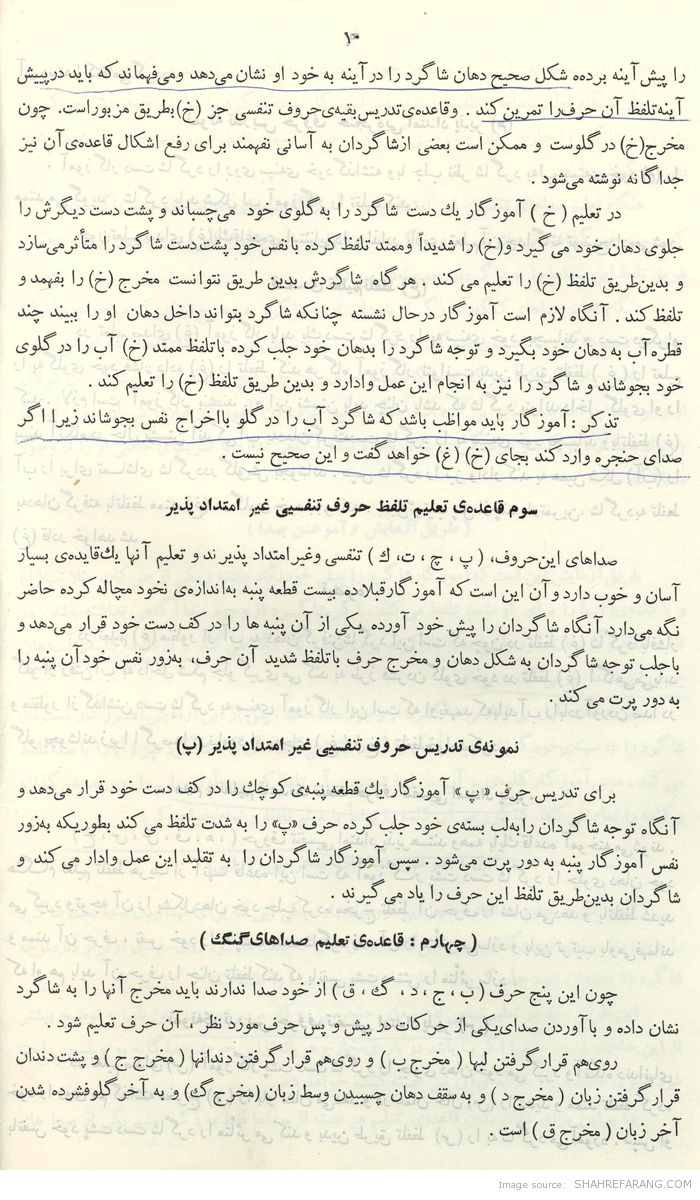 ۱۰
را پیش آینه برده شکل صحیح دهان شاگرد را در آینه به خود او نشان می‌دهد ومی‌فهماند که باید درپییش
آینه تلفظ آن حرف را تمرین کند . وقاعده‌ی تدریس بقیه‌ی حروف تنفسی جز (خ) بطریق مزبور است. چون
مخرج (خ) در گلوست و ممکن است بعضی از شاگردان به آسانی نفهمند برای رفع اشکال قاعده‌ی آن نیز
جداگانه نوشته می‌شود .
در تعلیم ( خ ) آموزگار یك دست شاگرد را به گلوی خود می‌چسباند و پشت دست دیگرش را
جلوی دهان خود می گیرد و(خ) را شدیداً وممتد تلفظ کرده با نفس خود پشت دست شاگرد را متأثر می‌سازد
و بدین‌طریق تلفظ (خ) را تعلیم می کند . هرگاه شاگردش بدین طریق نتوانست مخرج (خ) را بفهمد و
تلفظ کند . آنگاه لازم است آموزگار درحال نشسته چنانکه شاگرد بتواند داخل دهان او را ببیند چند
قطره آب به دهان خود بگیرد و توجه شاگرد را بدهان خود جلب کرده با تلفظ ممتد (خ) آب را در گلوی
خود بجوشاند و شاگرد را نیز به انجام این عمل وادارد و بدین طریق تلفظ (خ) را تعلیم کند .
تذکر : آموزگار باید مواظب باشد که شاگرد آب را در گلو بااخراج نفس بجوشاند زیرا اگر
صدای حنجره وارد کند بجای (خ) (غ) خواهد گفت و این صحیح نیست .
سوم قاعده‌ی تعلیم تلفظ حروف تنفسیی غیر امتداد پذیر
صداهای این‌حروف، ( پ ، چ ، ت، ك ) تنفسی وغیر امتداد پذیرند و تعلیم آنها یك‌قایده‌ی بسیار
آسان و خوب دارد و آن این است که آموزگار قبلا ده بیست قطعه پنبه به‌اندازه‌ی نخود مچاله کرده حاضر
نگه می‌دارد آنگاه شاگردان را پیش خود آورده یکی از آن پنبه ها را در کف دست خود قرار می‌دهد و
باجلب توجه شاگردان به شکل دهان و مخرج حرف باتلفظ شدید آن حرف، به‌زور نفس خودآن پنبه را
به دور پرت می کند .
نمونه‌ی تدریس حروف تنفسیی غیر امتداد پذیر (پ)
برای تدریس حرف « پ » آموزگار یك قطعه پنبه‌ی کوچك را در کف دست خود قرار می‌دهد و
آنگاه توجه شاگردان را به‌لب بسته‌ی خود جلب کرده حرف «پ» را به شدت تلفظ می کند بطوریکه به‌زور
نفس آموزگار پنبه به دور پرت می‌شود . سپس آموزگار شاگردان را به تقلید این عمل وادار می کند و
شاگردان بدین‌طریق تلفظ این حرف را یاد می گیرند .
( چهارم : قاعده‌ی تعلیم صداهای گنگ )
چون این پنج حرف ( ب ، ج ، د ، گ ، ق ) از خود صدا ندارند باید مخرج آنها را به شاگرد
نشان داده و با آوردن صدای‌یکی از حرکات در پیش و پس حرف مورد نظر ، آن حرف تعلیم شود .
روی‌هم قرار گرفتن لبها ( مخرج ب ) و روی‌هم قرار گرفتن دندانها ( مخرج ج ) و پشت دندان
قرار گرفتن زبان ( مخرج د ) و به سقف دهان چسبیدن وسط زبان (مخرج گ) و به آخر گلوفشرده شدن
آخر زبان ( مخرج ق ) است .
Image source: SHAHREFARANG.COM